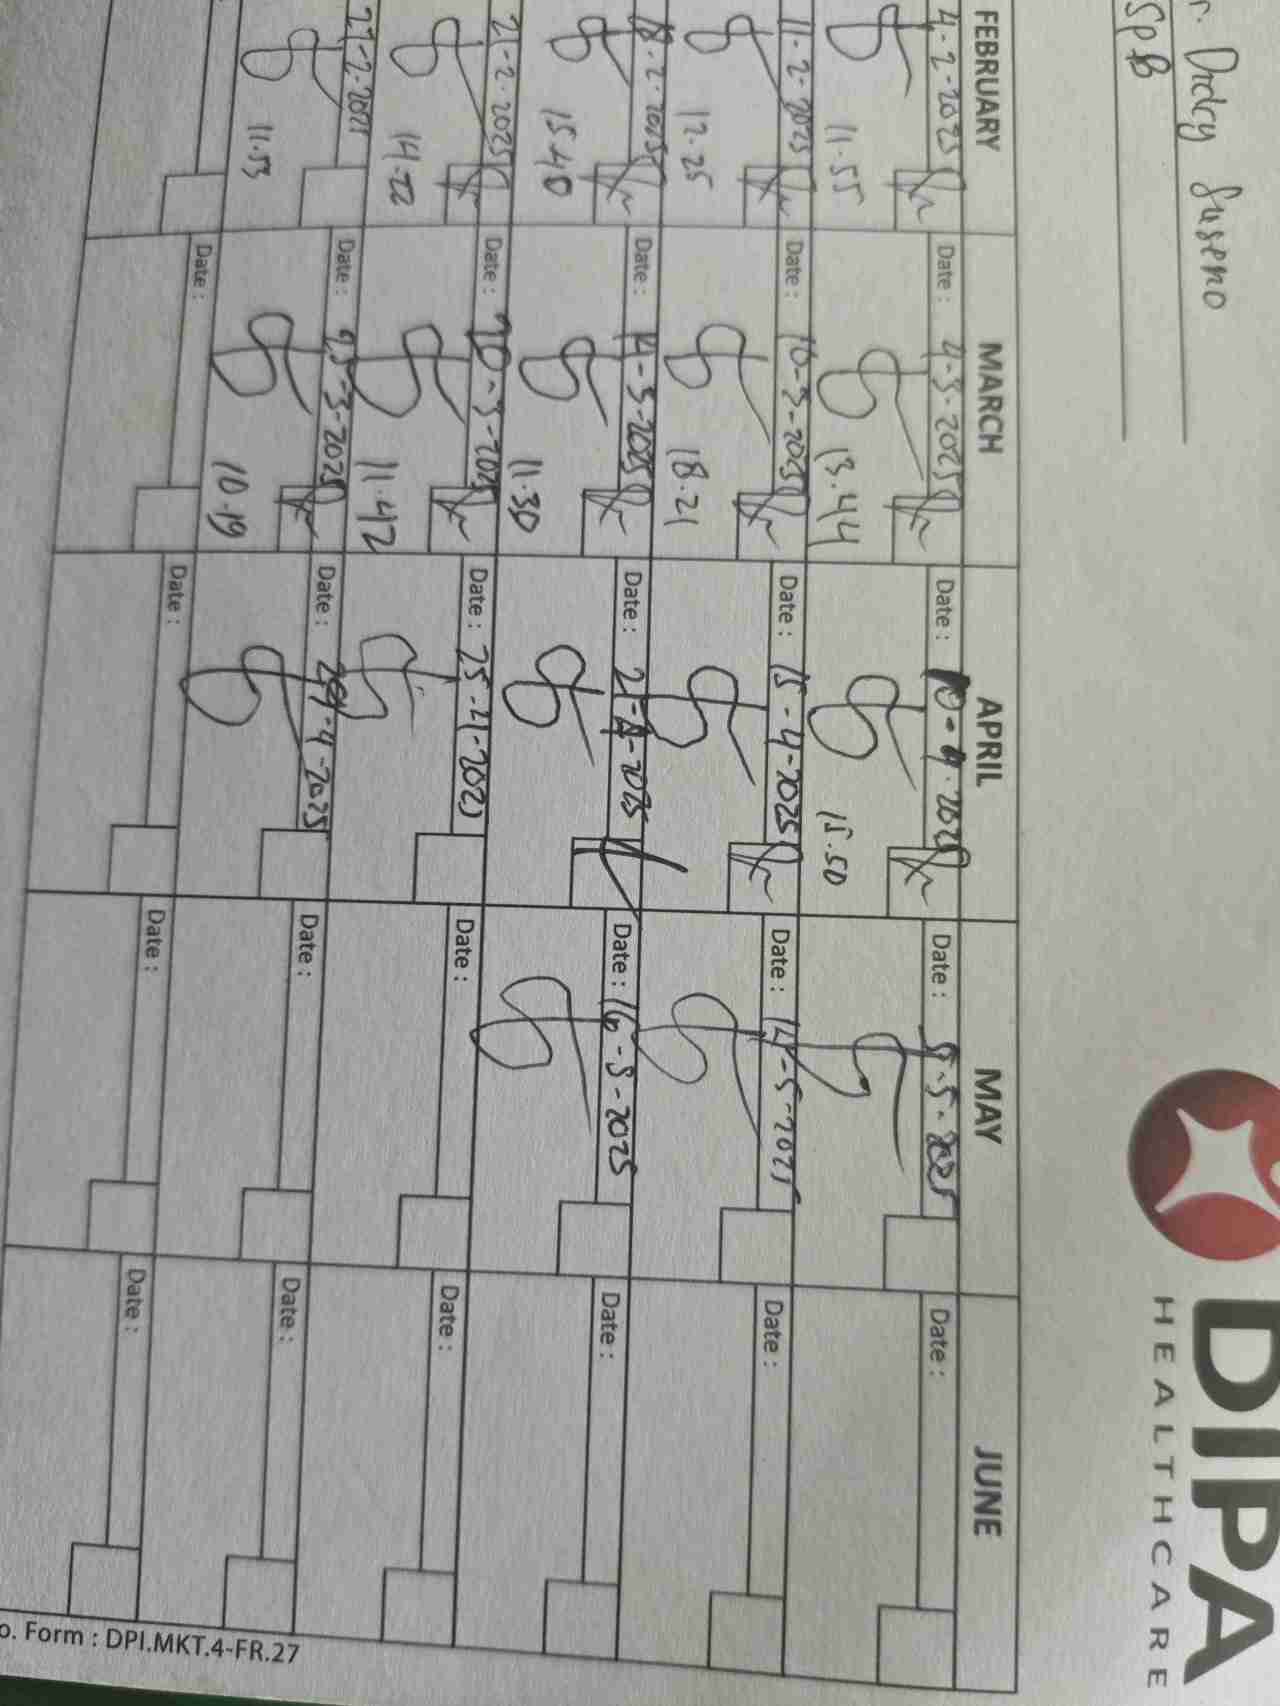 r. Diddy Suseno
SpB
DIPA
HEALTHCARE
FEBRUARY MARCH APRIL MAY JUNE
4-2-2025 Date : 4-3-2025 Date : 10-4-2025 Date : 5-5-2025 Date :
11.55 13.44 15.50
11-2-2025 Date : 10-3-2025 Date : 15-4-2025 Date : 14-5-2025 Date :
12.25 18.21
18-2-2025 Date : 14-3-2025 Date : 21-4-2025 Date : 16-5-2025 Date :
15.40 11.30
21-2-2025 Date : 20-3-2025 Date : 25-4-2025 Date : Date :
14.22 11.42
27-2-2025 Date : 25-3-2025 Date : 29-4-2025 Date : Date :
11.53 10.19
Date : Date : Date : Date :
o. Form : DPI.MKT.4-FR.27